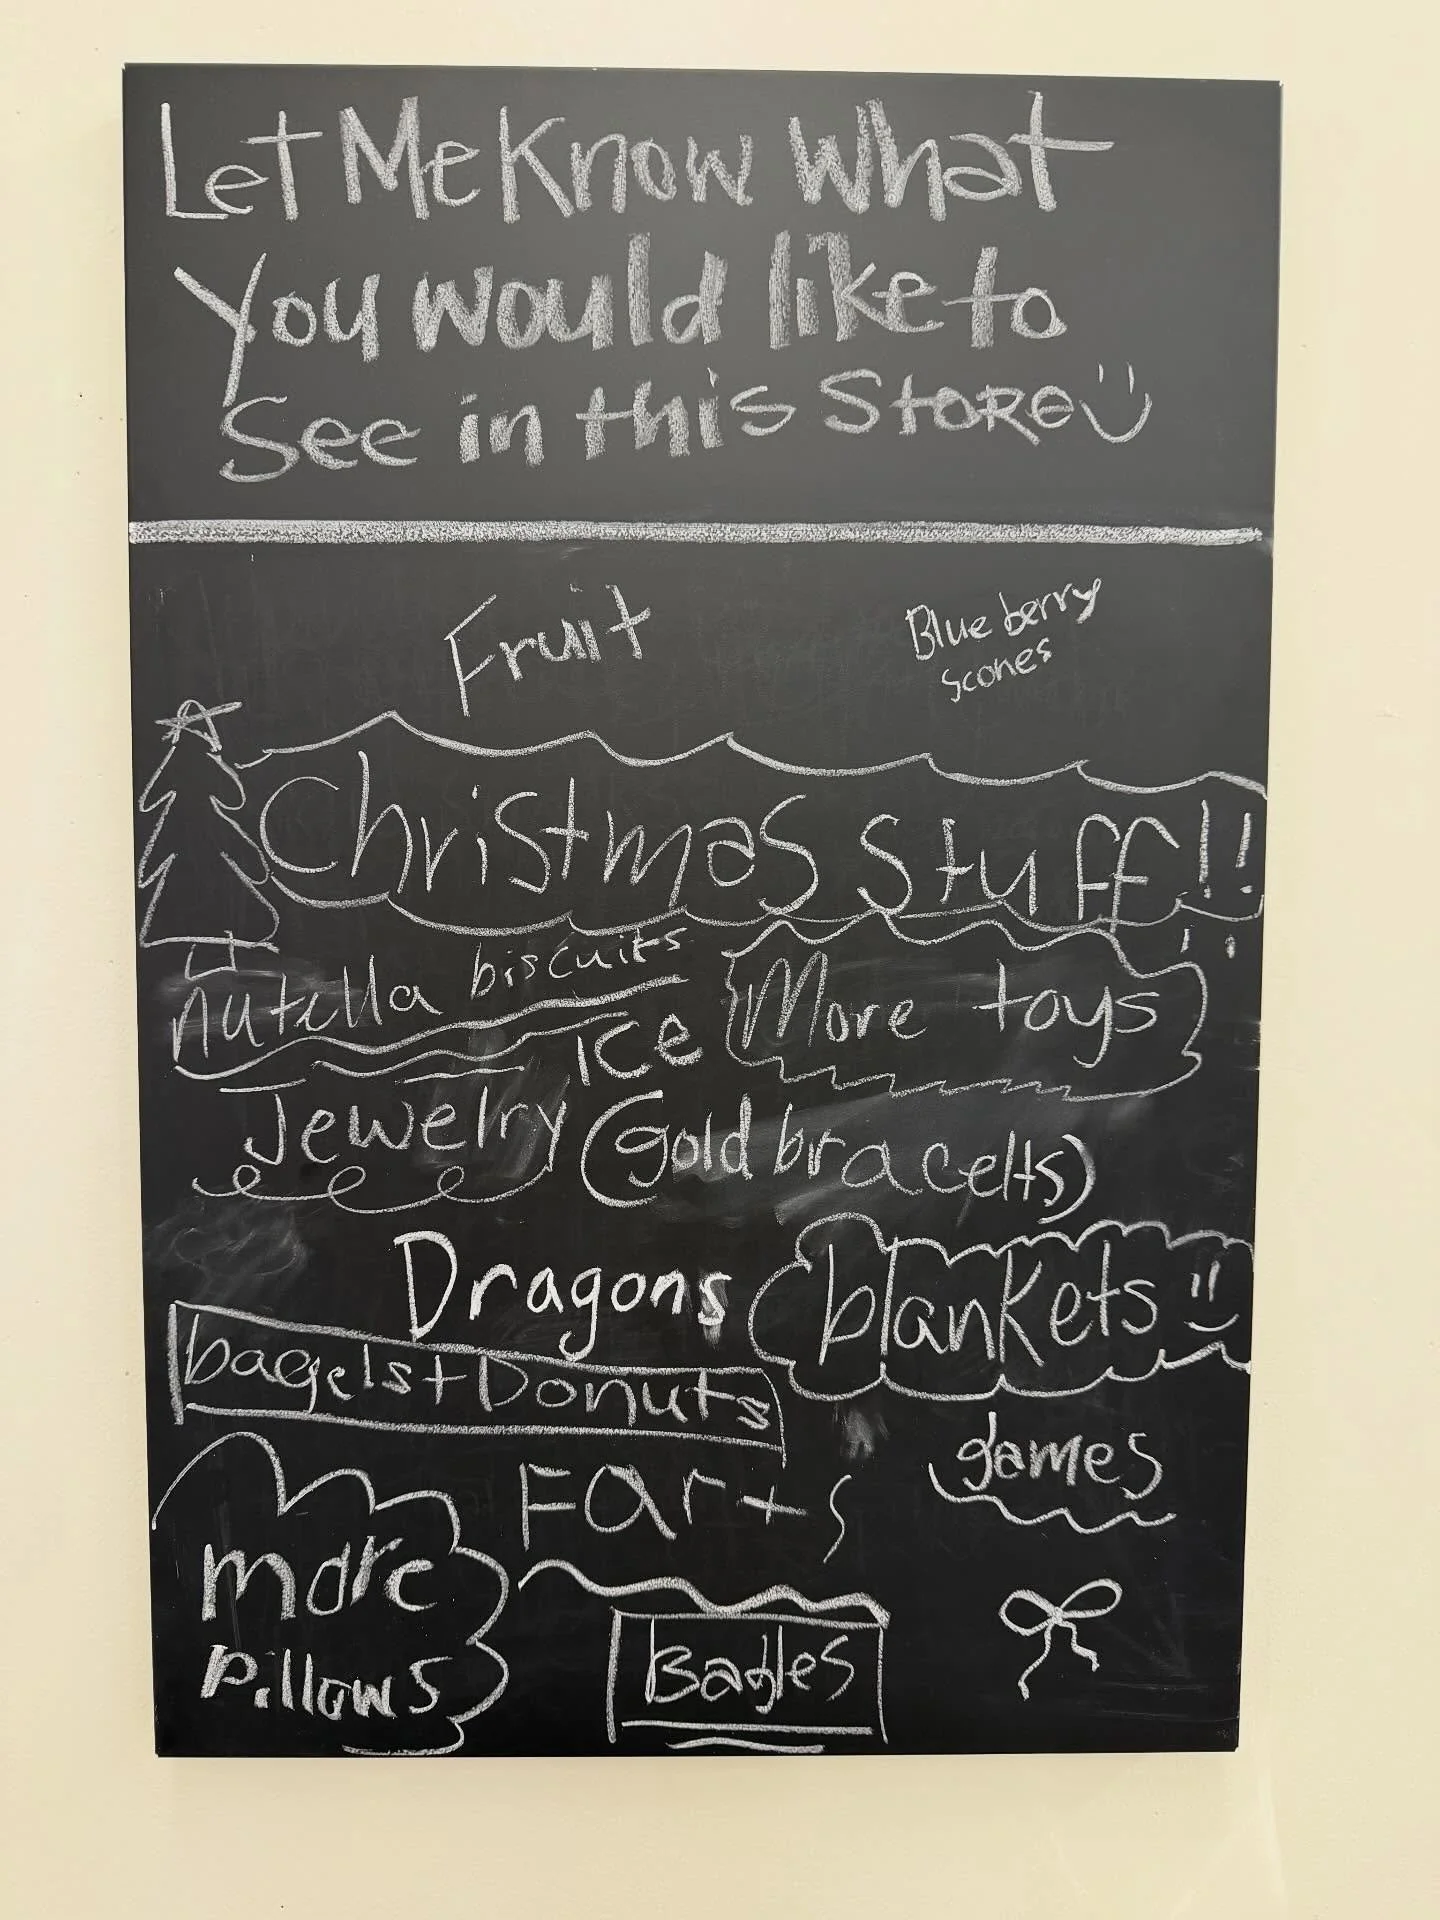 Let Me Know What
You would like to
See in this Store
Fruit
Blueberry
scones
Christmas Stuff!!
nutella biscuits
More toys
ICe
Jewelry (gold bracelts)
Dragons
blankets
bagels + Donuts
games
FArts
more
pillows
Bagles